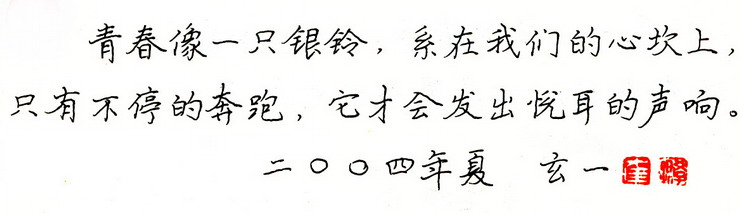 青春像一只银铃，系在我们的心坎上，
只有不停的奔跑，它才会发出悦耳的声响。
二〇〇四年夏 玄一